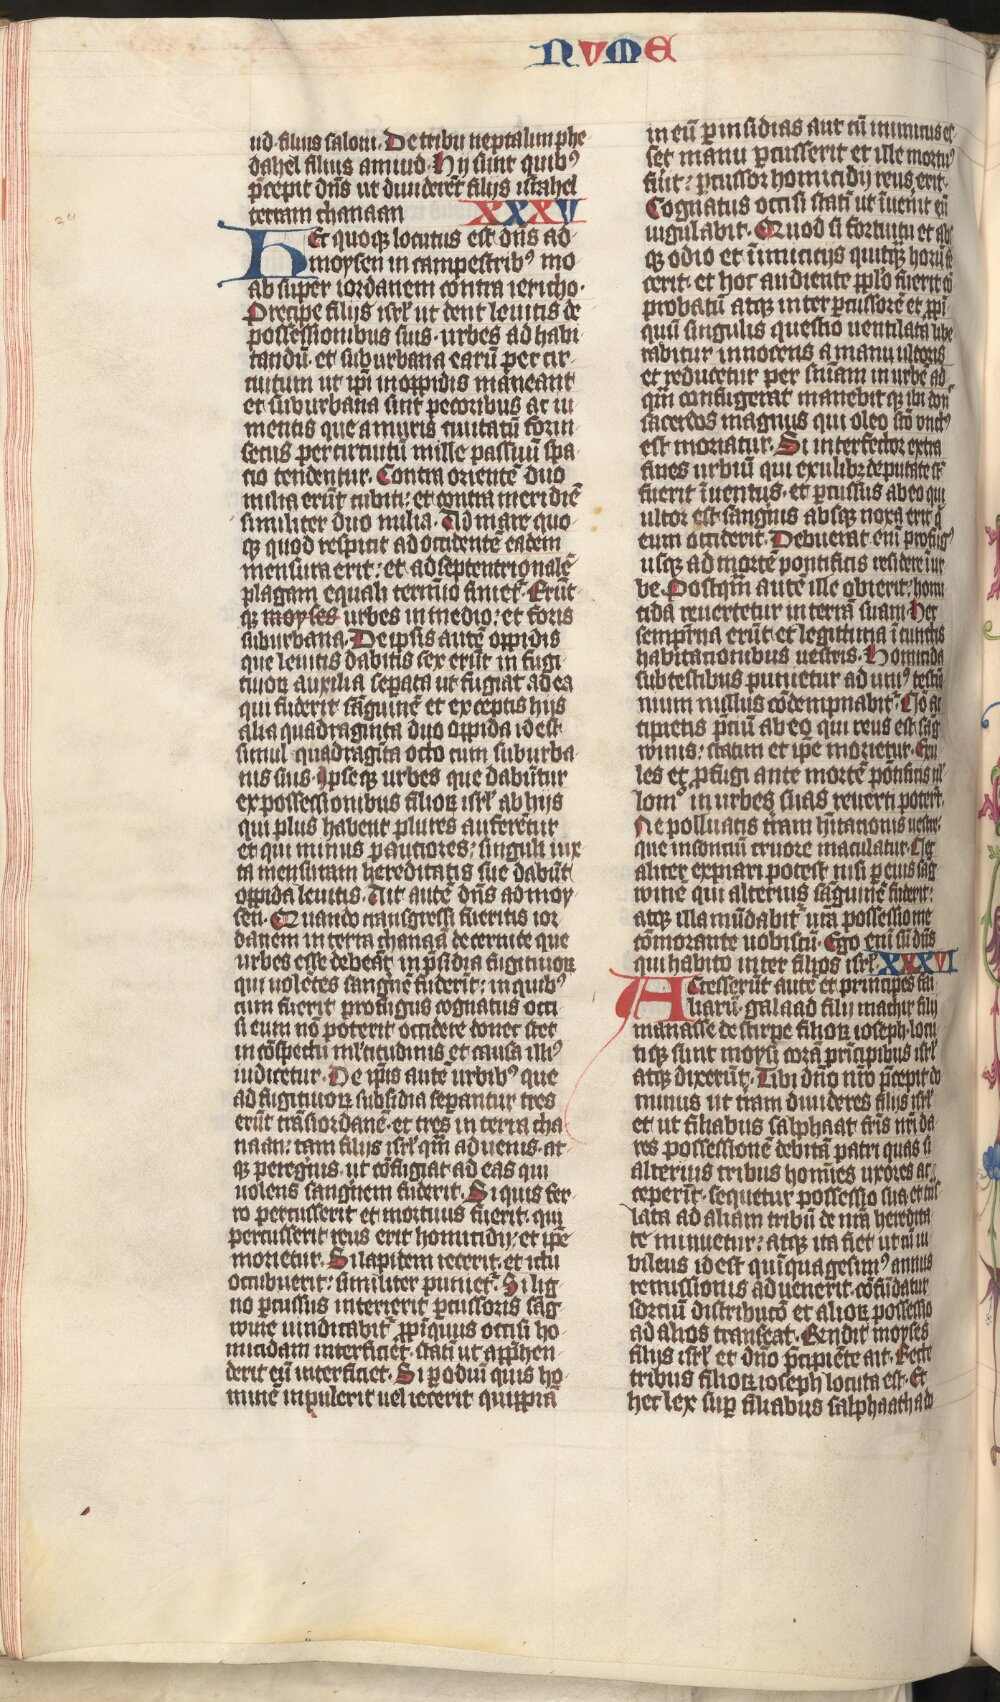 NVME
ud filius salomi. De tribu neptalim phe
dahel filius amiud. Hij sunt quibꝰ
p̄cepit dn̄s ut dividerēt filijs israhel
terram chanaan XXXV
HEc quoqꝫ locutus est dn̄s ad
moysen in campestribꝰ mo
ab super iordanem contra iericho.
Precipe filijs isrl̄ ut dent levitis de
possessionibus suis. urbes ad habi
tandū. et suburbana earū per cir
cuitum ut ip̄i in oppidis maneant
et suburbana sint pecoribus ac iu
mentis que a muris civitatū forin
secus per circuitū mille passuū spa
cio tendentur. Contra orientē duo
milia erūt cubiti: et contra meridiē
similiter duo milia. Ad mare quo
qꝫ quod respicit ad occidentē eadem
mensura erit: et ad septentrionalē
plagam equali termīo finietꝛ. Erūt
qꝫ moyses urbes in medio: et foris
suburbana. De ipsis autē oppidis
que levitis dabitis sex erūt in fugi
tivoꝝ auxilia sep̄ata ut fugiat ad ea
qui fuderit sāguinē et exceptis hijs
alia quadraginta duo oppida id est
simul quadragīta octo cum suburba
nis suis. Ipseqꝫ urbes que dabūtur
ex possessionibus filioꝝ isrl̄ ab hijs
qui plus habent plures auferētur
et qui minus pauciores: singuli iux
ta mensuram hereditatis sue dabūt
oppida levitis. Ait autē dn̄s ad moy
sen. Quando trāsgressi fueritis ior
danem in terrā chanaā decernite que
urbes esse debeāt in p̄sidia fugitivoꝝ
qui volētes sanguinē fuderīt: in quibꝰ
cum fuerit profugus cognatus occi
si eum nō poterit occidere donec stet
in cōspectu ml̄titudinis et causa illiꝰ
iudicetur. De ip̄is autē urbibꝰ que
ad fugitivoꝝ subsidia sepantur tres
erūt trāsiordanē. et tres in terra cha
naan: tam filijs isrl̄ qm̄ advenis at
qꝫ peregnis. ut cōfugiat ad eas qui
nolens sanguinem fuderit. Si quis fer
ro percusserit et mortuus fuerit. qui
percusserit reus erit homicidij: et ip̄e
morietur. Si lapidem iecerit. et ictu
occubuerit: similiter punietꝛ. Si lig
no p̄cussus interierit p̄cussoris sāg
wine vindicabitꝛ. p̄pīquus occisi ho
micidam interficiet. statī ut app̄hen
derit eū interficiet. Si p̄ odiū quis ho
minē inpulerit vel iecerit quippiā
in eū p̄ insidias aut cū inimicus es
set manu p̄cusserit et ille mortuꝰ
fūit: p̄cussor homicidij reus erit.
Cognatus occisi statī ut īvenit eū
iugulabit. Quod si fortuitu et abs
qꝫ odio et īmiciciis quitqꝫ horū fe
cerit. et hoc audiente pp̄lo fuerit cō
probatū atqꝫ inter p̄cussorē et p̄pī
quū singulis questio ventilata libe
rabitur innocens a manu ultoris
et reducetur per sn̄iam in urbē ad
qm̄ confugerat manebitqꝫ ibi don̄
sacerdos magnus qui oleo sc̄o unctꝰ
est moriatur. Si interfector extra
fines urbiū qui exulibꝫ deputate st̄
fuerit īventus. et p̄cussus ab eo qui
ultor est sanguis absqꝫ noxa erit q̄
eum occiderit. Debuerat enī profugꝰ
usqꝫ ad mortē pontificis residere ī ur
be. Postqm̄ autē ille obierit: homi
cida revertetur in terrā suam. Hec
sempit̄na erūt. et legittima ī cunctis
habitationibus vestris. Homicida
sub testibus punietur ad uniꝰ testiō
nium nullus cōdempnabitꝛ. Nō ac
cipietis p̄ciū ab eo qui reus est sāg
winis: statim et ip̄e morietur. Exu
les et p̄fugi ante mortē pōtificis nl̄
lomꝰ in urbes suas reverti poterūt.
Ne polluatis tr̄am h̄itationis vestre:
que insonciū cruore maculatur. Nec
aliter expiari potest nisi p̄ eius sāg
winē qui alterius sāguinē fuderit:
atqꝫ illa mūdabitꝛ vr̄a possessio me
cōmorante vobiscū. Ego enī sū dn̄s
qui habito inter filios isrl̄. XXXVI
ACcesserūt autē et principes fai
liarū. galaad filij machir filij
manasse de stirpe filioꝝ ioseph. locu
tiqꝫ sunt moysi corā prīcipibus isrl̄
atqꝫ dixerūt. Tibi dn̄o nr̄o p̄cepit do
minus ut tr̄am divideres filijs isrl̄
et ut filiabus salphaat fr̄is nr̄i da
res possessionē debitā patri quas si
alterius tribus homīes uxores ac
ceperīt. sequetur possessio sua et trās
lata ad aliam tribū de nr̄a heredita
te minuetur: atqꝫ ita fiet ut cū iu
bileus id est quīquagesimꝰ annus
remissionis advenerit. cōfūdatur
sortiū distribucō et alioꝝ possessio
ad alios transeat. Rendit moyses
filijs isrl̄ et dn̄o p̄cipiēte ait. Recte
tribus filioꝝ ioseph locuta est. Et
hec lex sup̄ filiabus salphaath a do